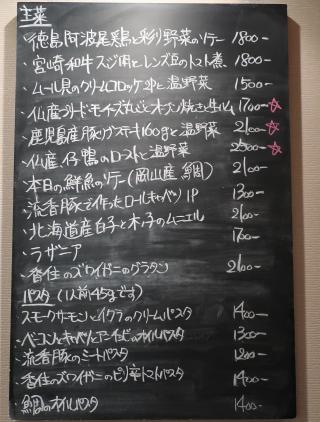 主菜
・徳島阿波尾鶏と彩り野菜のソテー 1800-
・宮崎和牛スジ肉とレンズ豆のトマト煮 1800-
・ムール貝のクリームコロッケ2Pと温野菜 1500-
・仏産 丸ごと オーブン焼きと生ハム 1700-☆
・鹿児島産豚 ステーキ160gと温野菜 2100-☆
・仏産仔鴨のローストと温野菜 2500-☆
・本日の鮮魚のソテー(岡山産 鯛) 2100-
・流香豚で作ったロールキャベツ 1P 1300-
・北海道産白子と木ノ子のムニエル 2100-
・ラザニア 1700-
・香住のズワイガニのグラタン 2100-
パスタ(1人前45gです)
スモークサーモンとイクラのクリームパスタ 1400-
・ベーコンとキャベツとアンチョビのオイルパスタ 1300-
流香豚のミートパスタ 1200-
・香住のズワイガニのピリ辛トマトパスタ 1400-
・鯛のオイルパスタ 1400-